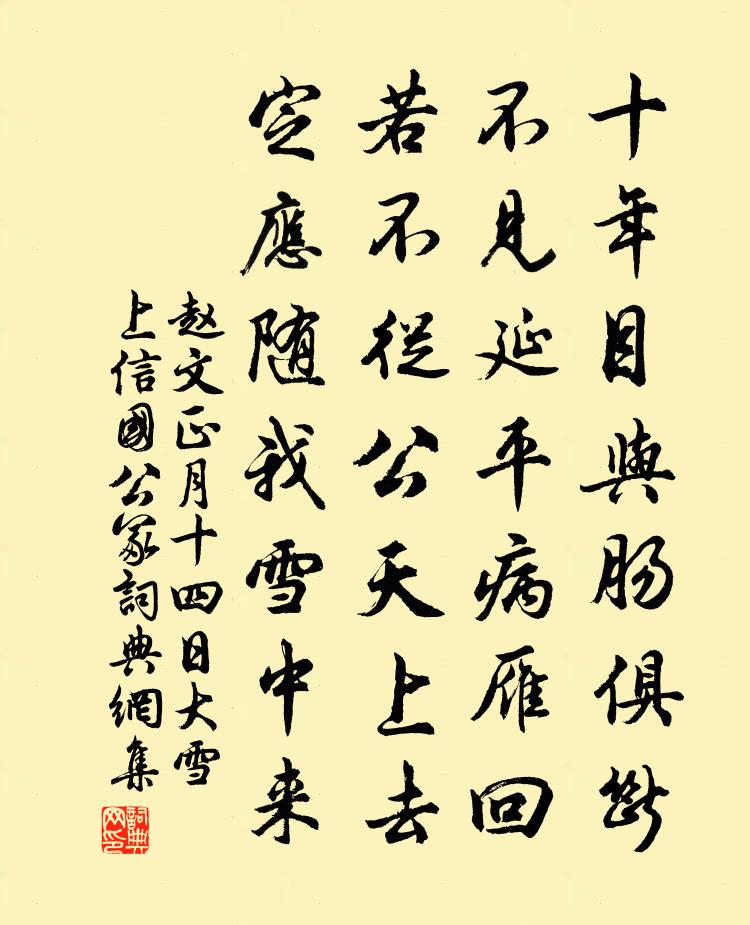 十年目與腸俱斷
不見延平病雁回
若不從公天上去
定應随我雪中来
赵文正月十四日大雪
上信國公冢詞典網集
詞典網印